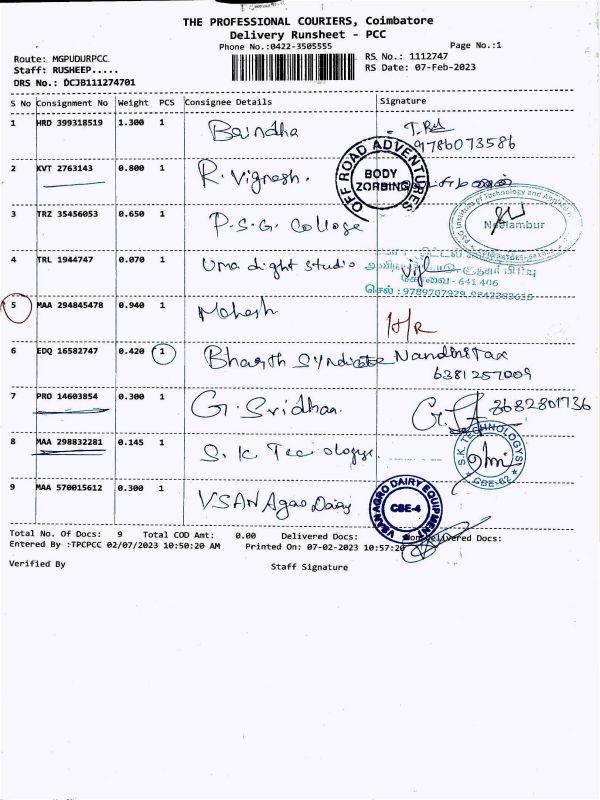 THE PROFESSIONAL COURIERS, Coimbatore
Delivery Runsheet - PCC
Phone No.:0422-3505555
Page No.:1
Route: MGPUDURPCC
RS No.: 1112747
Staff: RUSHEEP.....
RS Date: 07-Feb-2023
DRS No.: DCJB111274701
S No Consignment No Weight PCS Consignee Details Signature
1 HRD 399318519 1.300 1
9786073586
2 KVT 2763143 0.800 1 R. Vignesh.
OFF ROAD ADVENTURES
BODY
ZORBING
3 TRZ 35456053 0.650 1 P.S.G. College
PSG Institute of Technology and Applied
Neelambur
4 TRL 1944747 0.070 1 Uma dight Studio
கோவை - 641 406
செல் : 9789707929
5 MAA 294845478 0.940 1 Mahesh
H/R
6 EDQ 16582747 0.420 1 Bharath Syndicate Nandhini Tax
6381257009
7 PRO 14603854 0.300 1 G. Sridhar.
8682801736
8 MAA 298832281 0.145 1 S.K
S.K. TECHNOLOGYS
CBE-62
9 MAA 570015612 0.300 1 VSAN Agro Dairy
VSAN AGRO DAIRY EQUIPMENT
CBE-4
Total No. Of Docs: 9 Total COD Amt: 0.00 Delivered Docs: Non Delivered Docs:
Entered By :TPCPCC 02/07/2023 10:50:20 AM Printed On: 07-02-2023 10:57:20
Verified By
Staff Signature